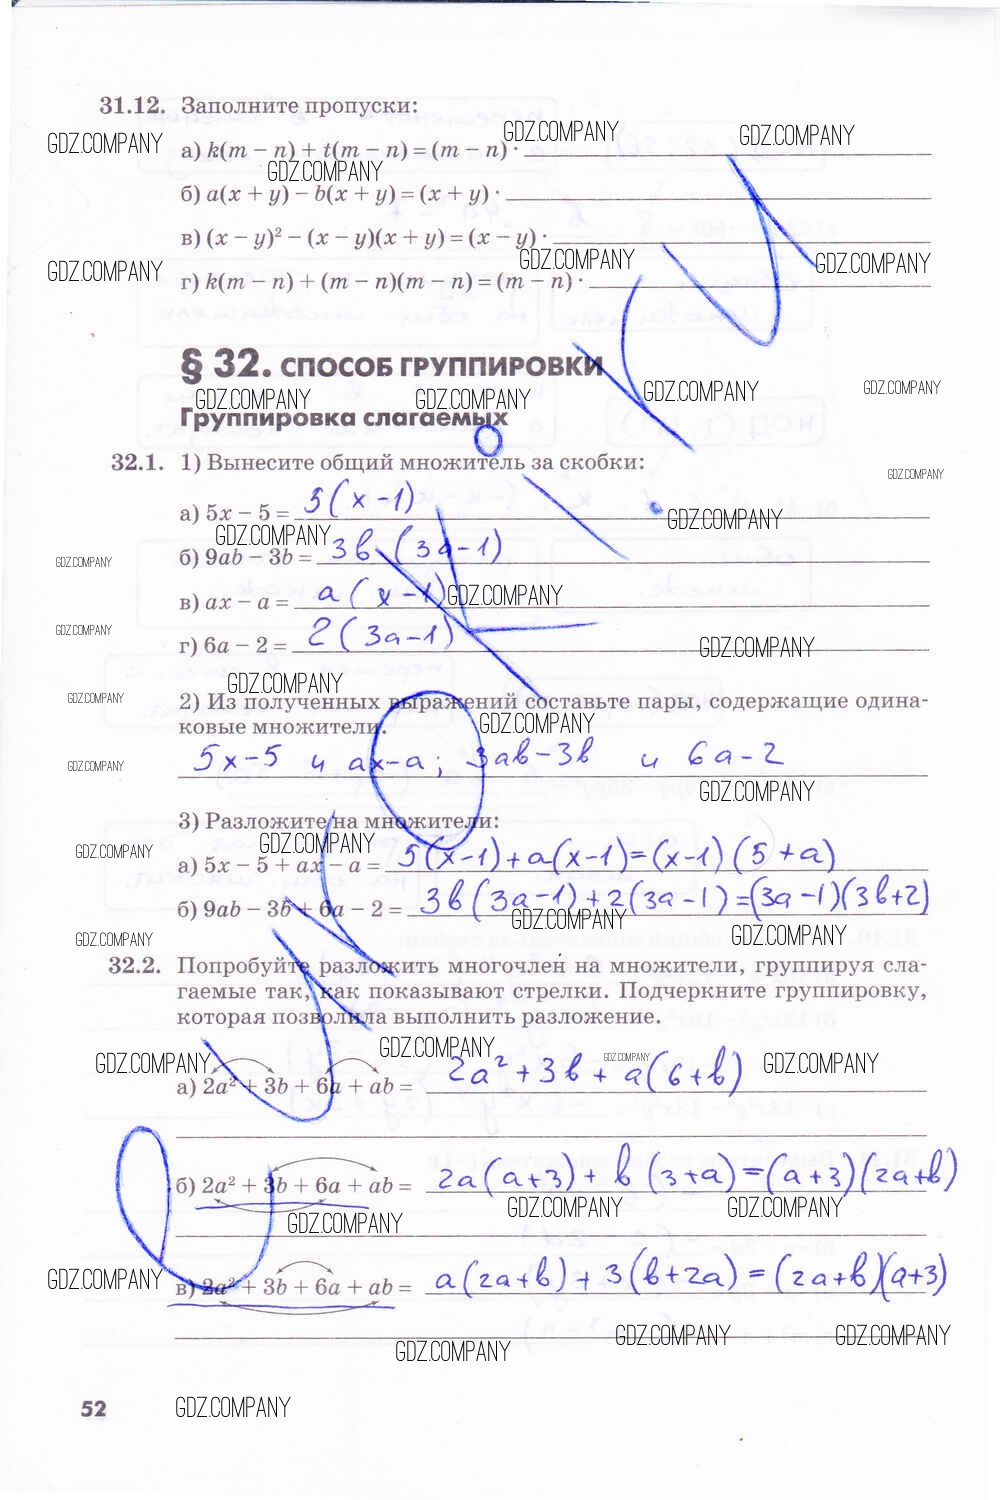 31.12. Заполните пропуски:
GDZ.COMPANY GDZ.COMPANY GDZ.COMPANY
а) k(m − n) + t(m − n) = (m − n) ·
GDZ.COMPANY
б) a(x + y) − b(x + y) = (x + y) ·
в) (x − y)² − (x − y)(x + y) = (x − y) ·
GDZ.COMPANY GDZ.COMPANY GDZ.COMPANY
г) k(m − n) + (m − n)(m − n) = (m − n) ·
§ 32. СПОСОБ ГРУППИРОВКИ
GDZ.COMPANY GDZ.COMPANY GDZ.COMPANY GDZ.COMPANY
Группировка слагаемых
32.1. 1) Вынесите общий множитель за скобки:
GDZ.COMPANY
а) 5x − 5 = 5(x − 1)
GDZ.COMPANY GDZ.COMPANY
б) 9ab − 3b = 3b (3a − 1)
GDZ.COMPANY
в) ax − a = a(x − 1)
GDZ.COMPANY
GDZ.COMPANY
г) 6a − 2 = 2(3a − 1)
GDZ.COMPANY
GDZ.COMPANY
GDZ.COMPANY
2) Из полученных выражений составьте пары, содержащие одина-
ковые множители.
GDZ.COMPANY
5x − 5 и ax − a; 3ab − 3b и 6a − 2
GDZ.COMPANY
GDZ.COMPANY
3) Разложите на множители:
GDZ.COMPANY GDZ.COMPANY
а) 5x − 5 + ax − a = 5(x−1) + a(x−1) = (x−1)(5+a)
б) 9ab − 3b + 6a − 2 = 3b(3a−1) + 2(3a−1) = (3a−1)(3b+2)
GDZ.COMPANY GDZ.COMPANY GDZ.COMPANY
32.2. Попробуйте разложить многочлен на множители, группируя сла-
гаемые так, как показывают стрелки. Подчеркните группировку,
которая позволила выполнить разложение.
GDZ.COMPANY GDZ.COMPANY GDZ.COMPANY GDZ.COMPANY
а) 2a² + 3b + 6a + ab = 2a² + 3b + a(6+b)
б) 2a² + 3b + 6a + ab = 2a(a+3) + b(3+a) = (a+3)(2a+b)
GDZ.COMPANY GDZ.COMPANY GDZ.COMPANY
GDZ.COMPANY
в) 2a² + 3b + 6a + ab = a(2a+b) + 3(b+2a) = (2a+b)(a+3)
GDZ.COMPANY GDZ.COMPANY GDZ.COMPANY
52 GDZ.COMPANY